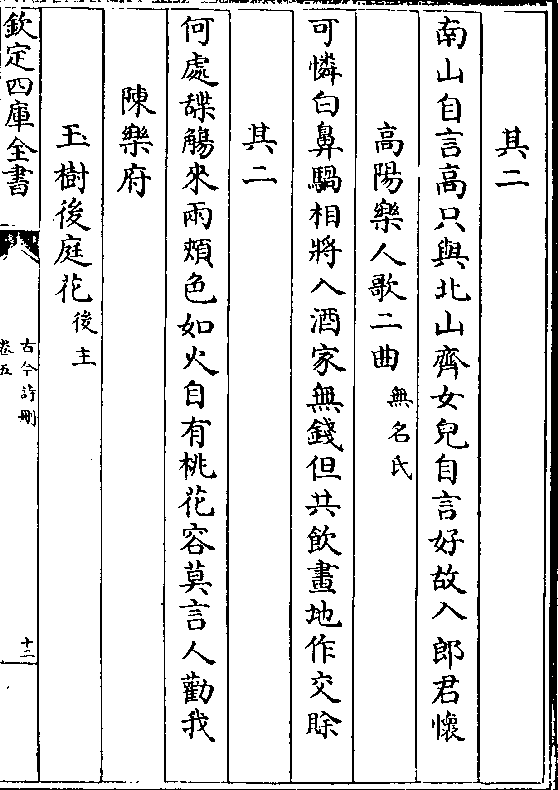 其二
南山自言高只與北山齊女兒自言好故入郎君懷
高陽樂人歌二曲無名氏
可憐白鼻騧相將入酒家無錢但共飲畫地作交賖
其二
何處䑛觴來兩頰色如火自有桃花容莫言人勸我
陳樂府
玉樹後庭花後主
欽定四庫全書
古今詩刪
卷五
十二